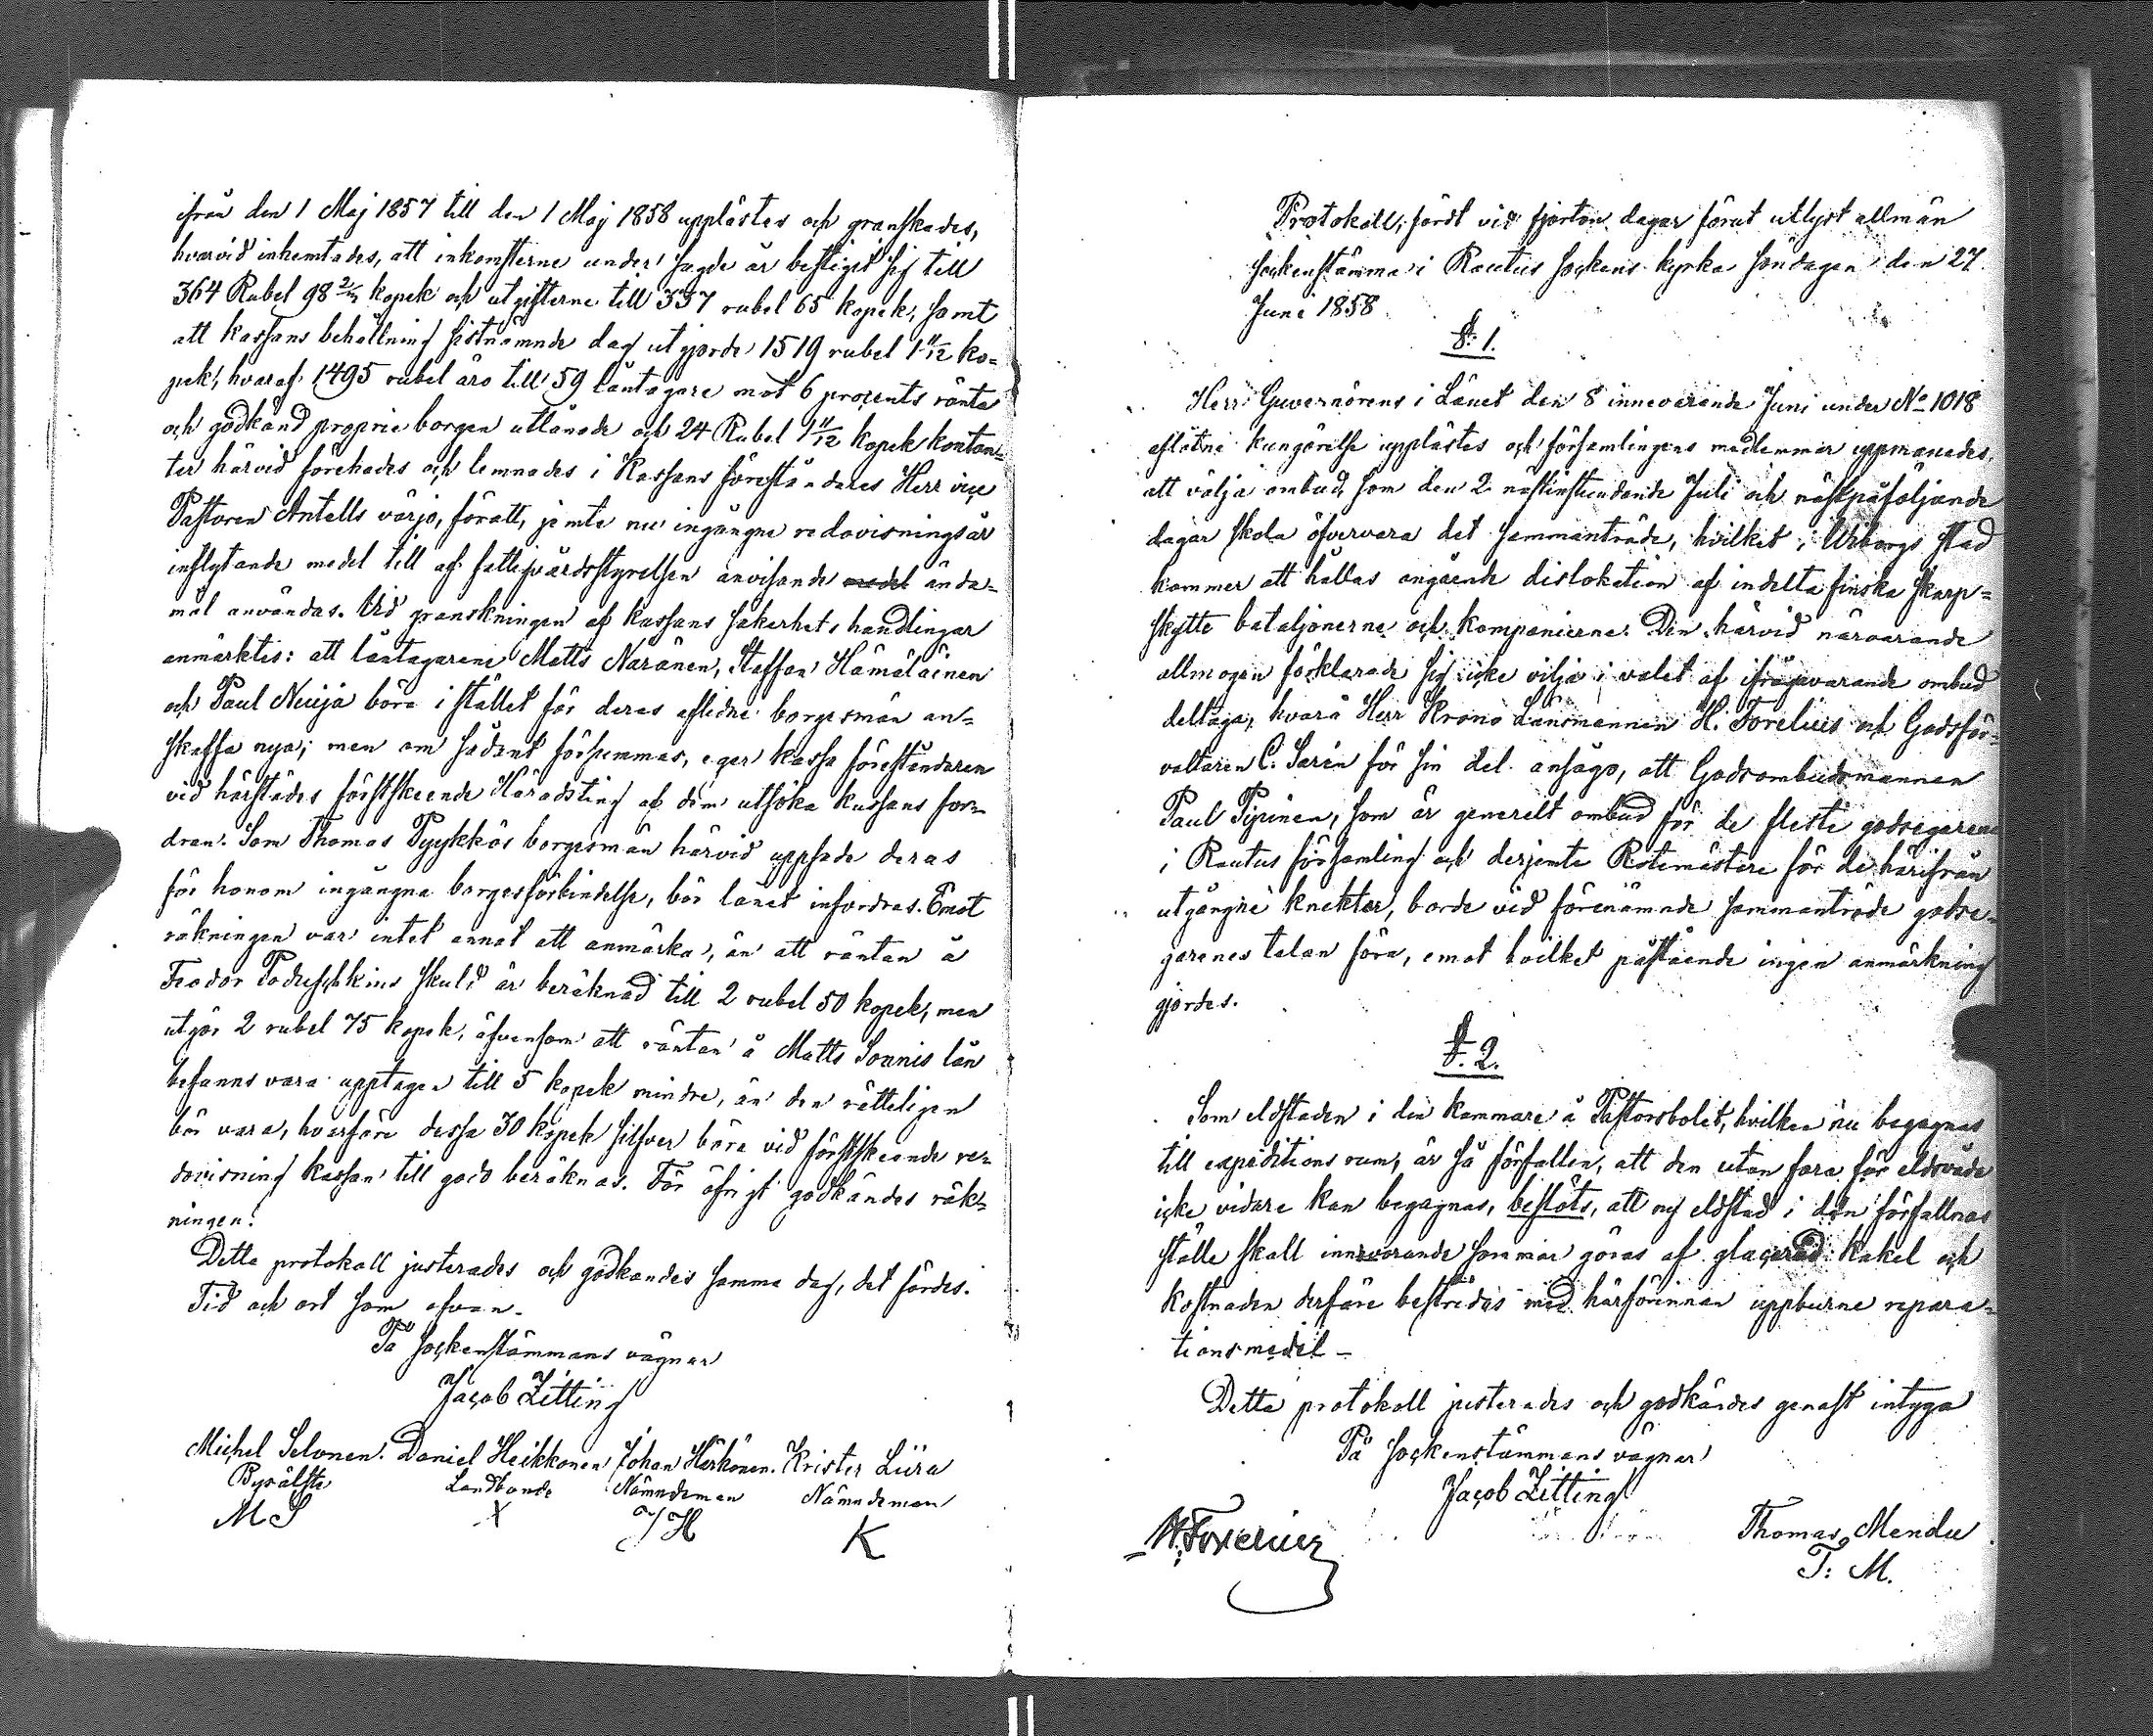 ifrån den 1 Maj 1857 till den 1 Maj 1858 upplästes och granskades,
hvarvid inhemtades, att inkomsterne under sagde år bestigit sig till
364 Rubel 98 2/7 kopek och utgifterne till 337 rubel 65 kopek, samt
att kassans behållning sistnämnde dag utgjorde 1519 rubel 1 11/12 ko-
pek, hvaraf 1495 rubel äro till 59 låntagare mot 6 procents ränta
och godkänd proprie borgen utlånade och 24 Rubel 1 11/12 kopek kontan-
ter härvid förehades och lemnades i Kassans föreståndares Herr vice
Pastoren Antells värjo, föratt, jemte nu ingångne redovisningsår
inflytande medel till af fattigvårdsstyrelsen anvisande medel ända-
mål användas. Vid granskningen af kassans säkerhets handlingar
anmärktes: att låntagarene Matts Naränen, Staffan Hämäläinen
och Paul Nuija böra i stället för deras aflidne borgesmän an-
skaffa nya; men om sådant försummas, eger kassa föreståndaren
vid härstädes förstskeende Häradsting af dem utsöka kassans for-
dran. Som Thomas Pyykkös borgesmän härvid uppsade deras
för honom ingångna borgesförbindelse, bör lånet infordras. Emot
räkningen var intet annat att anmärka, än att räntan å
Feodor Podieschkins skuld är beräknad till 2 rubel 50 kopek, men
utgör 2 rubel 75 kopek, äfvensom att räntan å Matts Sonnis lån
befanns vara upptagen till 5 kopek mindre, än den rätteligen
bör vara, hvarföre dessa 30 kopek silfver böra vid förstskeende re-
dovisning kassan till godo beräknas. För öfrigt godkändes räk-
ningen.
Detta protokoll justerades och godkändes samma dag, det fördes.
Tid och ort som ofvan.
På Sockenstämmans vägnar
Jacob Zitting
Michel Selonen. Daniel Heikkonen Johan Härkönen. Krister Liira
Byrålste Landbonde Nämndeman Nämndeman
MS X JH K
Protokoll, fördt vid fjorton dagar förut utlyst allmän
Sockenstämma i Rautus Sockens kyrka Söndagen den 27
Juni 1858
§. 1.
Herr Guvernörens i Länet den 8 innevarande Juni under No 1018
aflåtne kungörelse upplästes och församlingens medlemmar uppmanades,
att välja ombud, som den 2 nästinstundande Juli och nästpåföljande
dagar skola öfvervara det sammanträde, hvilket i Wiborgs stad
kommer att hållas angående dislokation af indelta finska skarp-
skytte bataljonerne och kompanierne. Den härvid närvarande
allmogen förklarade sig icke vilja i valet af ifrågavarande ombud
deltaga, hvarå Herr Krono Länsmannen H. Forelius och Godsför-
valtaren C. Sarén för sin del ansågo, att Godsombudsmannen
Paul Pipinen, som är generelt ombud för de fleste godsegarene
i Rautus församling och derjemte Rotemästare för de härifrån
utgångne knektar, borde vid förenämnde sammanträde godse-
garenes talan föra, emot hvilket påstående ingen anmärkning
gjordes.
§. 2.
Som eldstaden i den kammare å Pastorsbolet, hvilken nu begagnas
till expeditions rum, är så förfallen, att den utan fara för eldsvåda
icke vidare kan begagnas, beslöts, att ny eldstad i den förfallnas
ställe skall innevarande sommar göras af glacerad kakel och
kostnaden derföre bestridas med härförinnan uppburne repara-
tionsmedel -
Detta protokoll justerades och godkändes genast intyga
På Sockenstämmans vägnar
Jacob Zitting
H. Forelius Thomas Mendu
T. M.